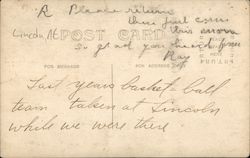 R Please return
this just came
Lincoln, POST CARD this morn
so glad you heard from
Ray
FOR MESSAGE FOR ADDRESS
Last years basket ball
team taken at Lincoln
while we were there